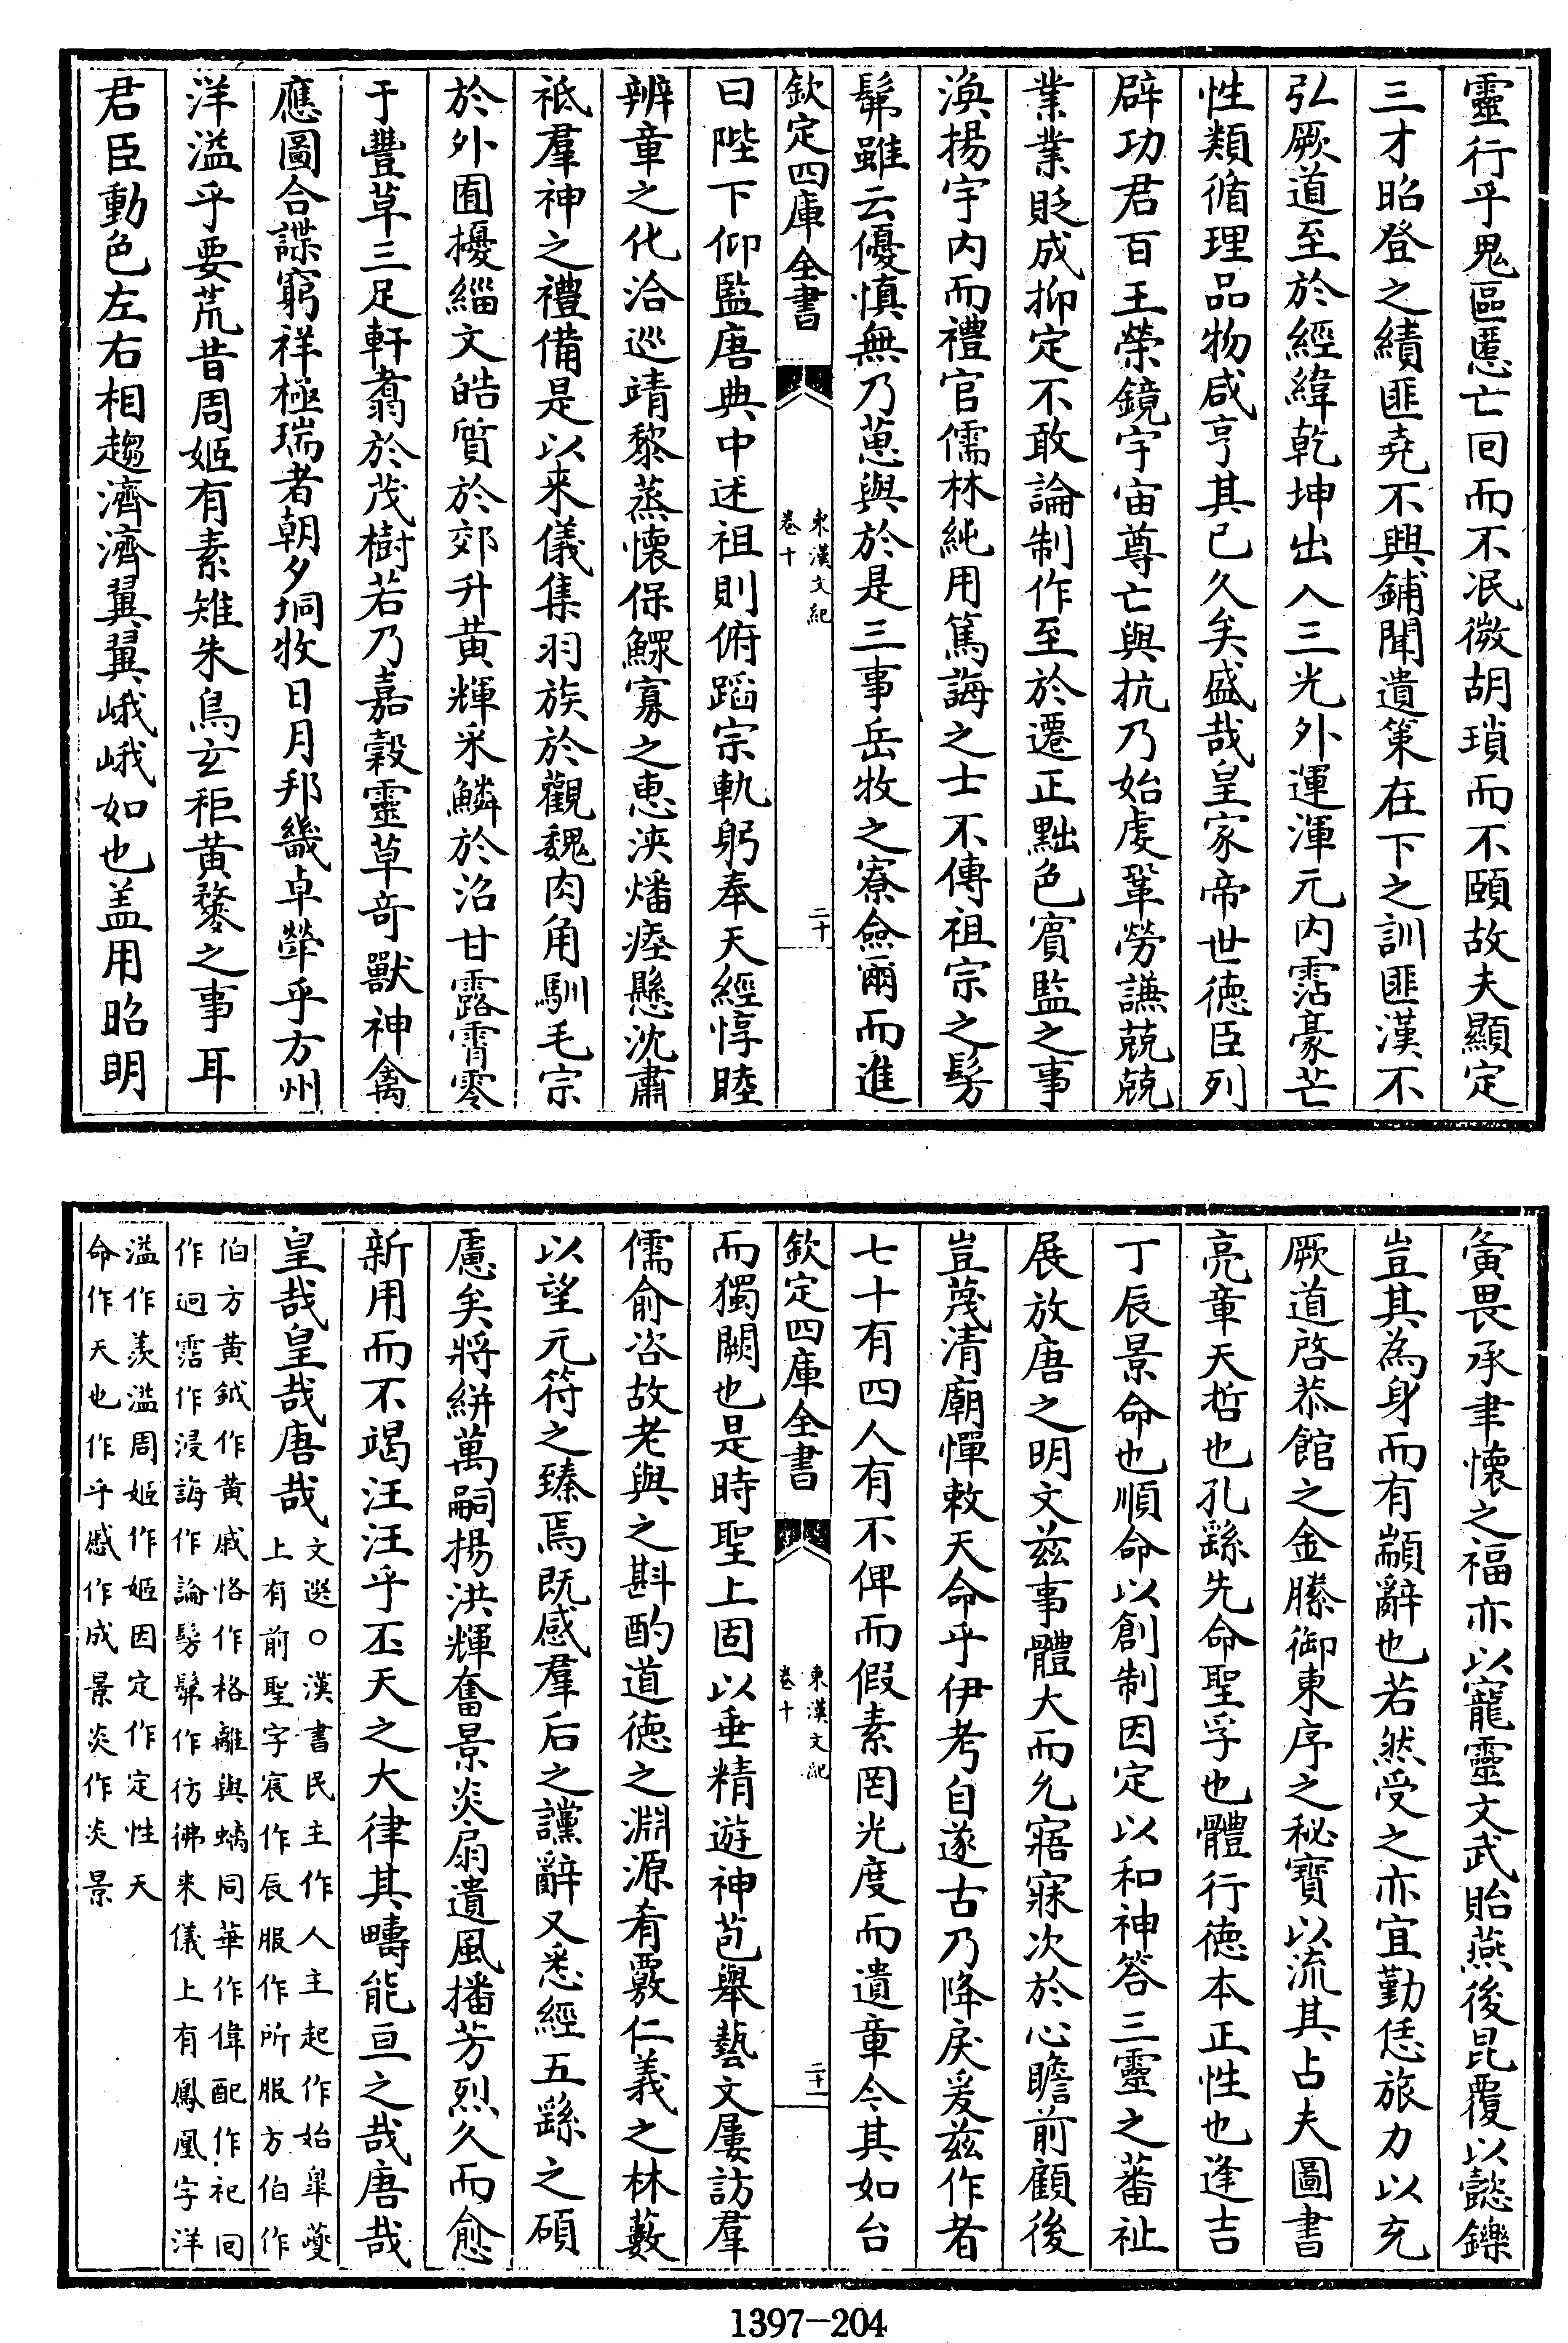 靈行乎鬼區慝亡囘而不泯微胡瑣而不頤故夫顯定
三才昭登之績匪堯不興鋪聞遺策在下之訓匪漢不
弘厥道至於經緯乾坤出入三光外運渾元内霑豪芒
性類循理品物咸亨其已久矣盛哉皇家帝世徳臣列
辟功君百王榮鏡宇宙尊亡與抗乃始虔鞏勞謙兢兢
業業貶成抑定不敢論制作至於遷正黜色賓監之事
渙揚宇内而禮官儒林純用篤誨之士不傳祖宗之髣
髴雖云優慎無乃葸與於是三事岳牧之寮僉爾而進
欽定四庫全書
東漢文紀
卷十
二十
曰陛下仰監唐典中述祖則俯蹈宗軌躬奉天經惇睦
辨章之化洽巡靖黎蒸懷保鰥寡之恵浹燔瘞懸沈肅
祗羣神之禮備是以来儀集羽族於觀魏肉角馴毛宗
於外囿擾緇文皓質於郊升黄輝采鱗於沼甘露霄零
于豐草三足軒翥於茂樹若乃嘉穀靈草竒獸神禽
應圖合諜窮祥極瑞者朝夕坰牧日月邦畿卓犖乎方州
洋溢乎要荒昔周姬有素雉朱鳥玄秬黄䅘之事耳
君臣動色左右相趨濟濟翼翼峨峨如也盖用昭明
寅畏承聿懷之福亦以寵靈文武貽燕後昆覆以懿鑠
豈其為身而有顓辭也若然受之亦宜勤恁旅力以充
厥道啓恭館之金縢御東序之秘寳以流其占夫圖書
亮章天哲也孔繇先命聖孚也體行徳本正性也逢吉
丁辰景命也順命以創制因定以和神答三靈之蕃祉
展放唐之明文兹事體大而允寤寐次於心瞻前顧後
豈蔑清廟憚敕天命乎伊考自遂古乃降戾爰兹作者
七十有四人有不俾而假素罔光度而遺章今其如台
欽定四庫全書
東漢文紀
卷十
二十一
而獨闕也是時聖上固以垂精遊神苞舉藝文屢訪羣
儒俞咨故老與之斟酌道徳之淵源肴覈仁義之林藪
以望元符之臻焉既感羣后之讜辭又悉經五繇之碩
慮矣將絣萬嗣揚洪輝奮景炎扇遺風播芳烈久而愈
新用而不竭汪汪乎丕天之大律其疇能亘之哉唐哉
皇哉皇哉唐哉
文選○漢書民主作人主起作始臯䕫
上有前聖字宸作辰服作所服方伯作
伯方黄鉞作黄戚恪作格離與螭同華作偉配作祀囘
作迥霑作浸誨作論髣髴作彷彿来儀上有鳳凰字洋
溢作羨溢周姬作姬因定作定性天
命作天也作乎慼作成景炎作炎景
1397-204